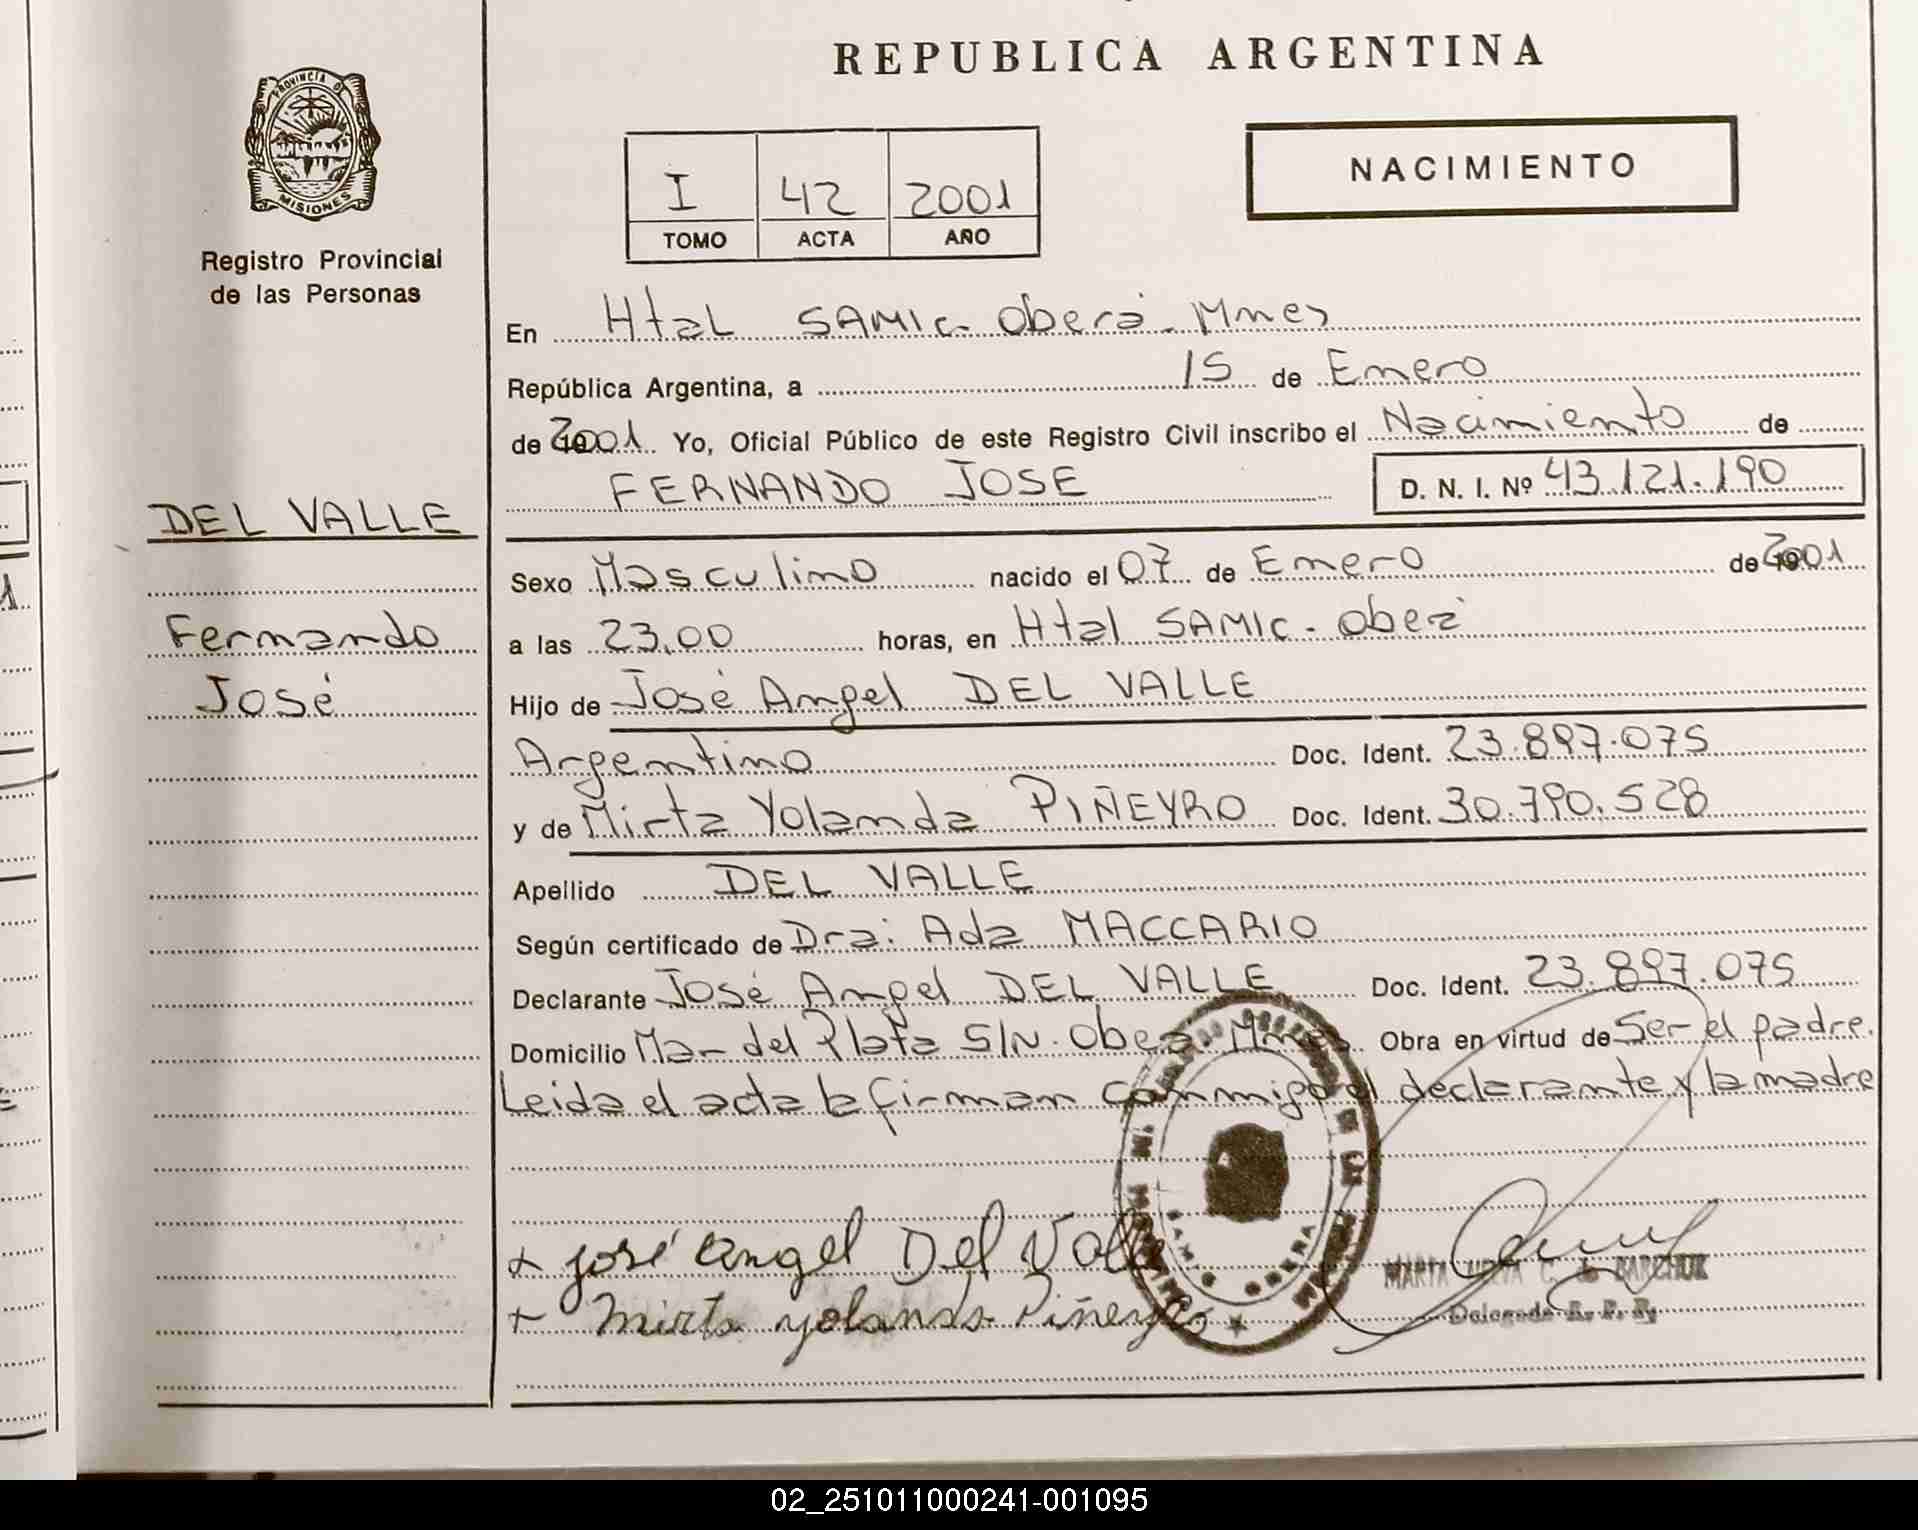 REPUBLICA ARGENTINA
PROVINCIA DE
MISIONES
Registro Provincial
de las Personas
I 42 2001
TOMO ACTA AÑO
NACIMIENTO
En Htal SAMIC- Oberá- Mnes
República Argentina, a 15 de Enero
de 2001 Yo, Oficial Público de este Registro Civil inscribo el Nacimiento de
FERNANDO JOSE D. N. I. Nº 43.121.190
DEL VALLE
Fernando
José
Sexo Masculino nacido el 07 de Enero de 2001
a las 23,00 horas, en Htal SAMIC- Oberá
Hijo de José Angel DEL VALLE
Argentino Doc. Ident. 23.897.075
y de Mirta Yolanda PIÑEYRO Doc. Ident. 30.790.528
Apellido DEL VALLE
Según certificado de Dra: Ada MACCARIO
Declarante José Angel DEL VALLE Doc. Ident. 23.897.075
Domicilio Mar del Plata S/N. Oberá. Mnes Obra en virtud de Ser el padre.
Leida el acta la firman conmigo el declarante y la madre
+ josé angel Del Valle
+ Mirta yolanda Piñeyro
MARTA C. de BARCHUK
Delegada R. P. P.
02_251011000241-001095